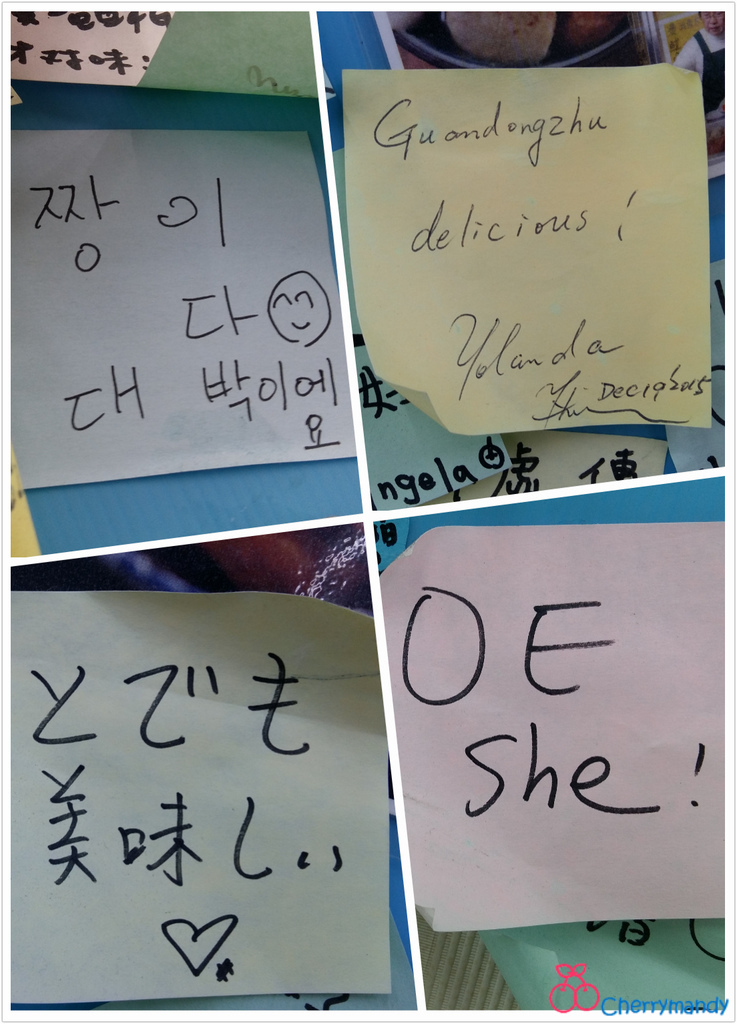 짱 이
다
대 박이에
요
Guandongzhu
delicious!
Yolanda
Dec 19' 2015
ngela
虑 傳
とでも
美味しい
OE
She!
味:
Cherrymandy